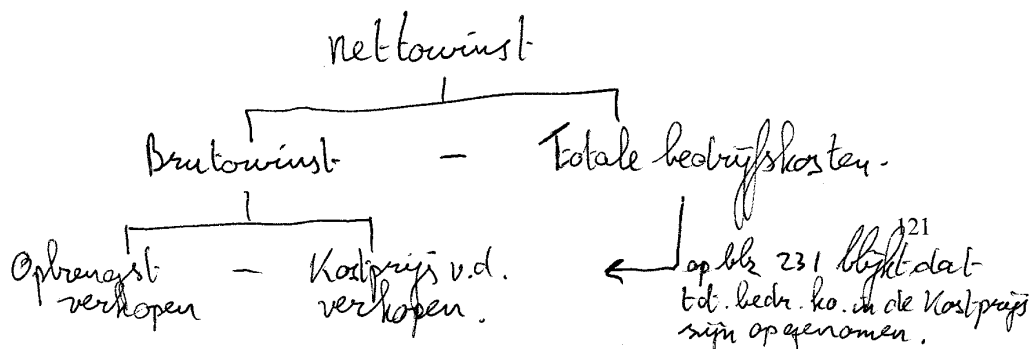 nettowinst
Brutowinst - Totale bedrijfskosten.
Opbrengst verkopen - Kostprijs v.d. verkopen.
121
op blz 231 blijkt dat
tot. bedr. ko. in de Kostprijs
zijn opgenomen.